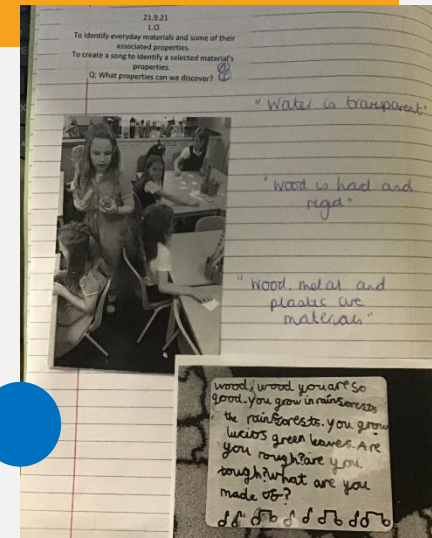 21.9.21
L.O.
To identify everyday materials and some of their
associated properties.
To create a song to identify a selected material's
properties.
Q: What properties can we discover?
"Water is transparent"
"Wood is hard and
rigid"
"Wood, metal and
plastic are
materials"
wood, wood you are so
good. You grow in rainforests
the rainforests. you grow
lucios green leaves. Are
you rough? are you
tough? what are you
made of?